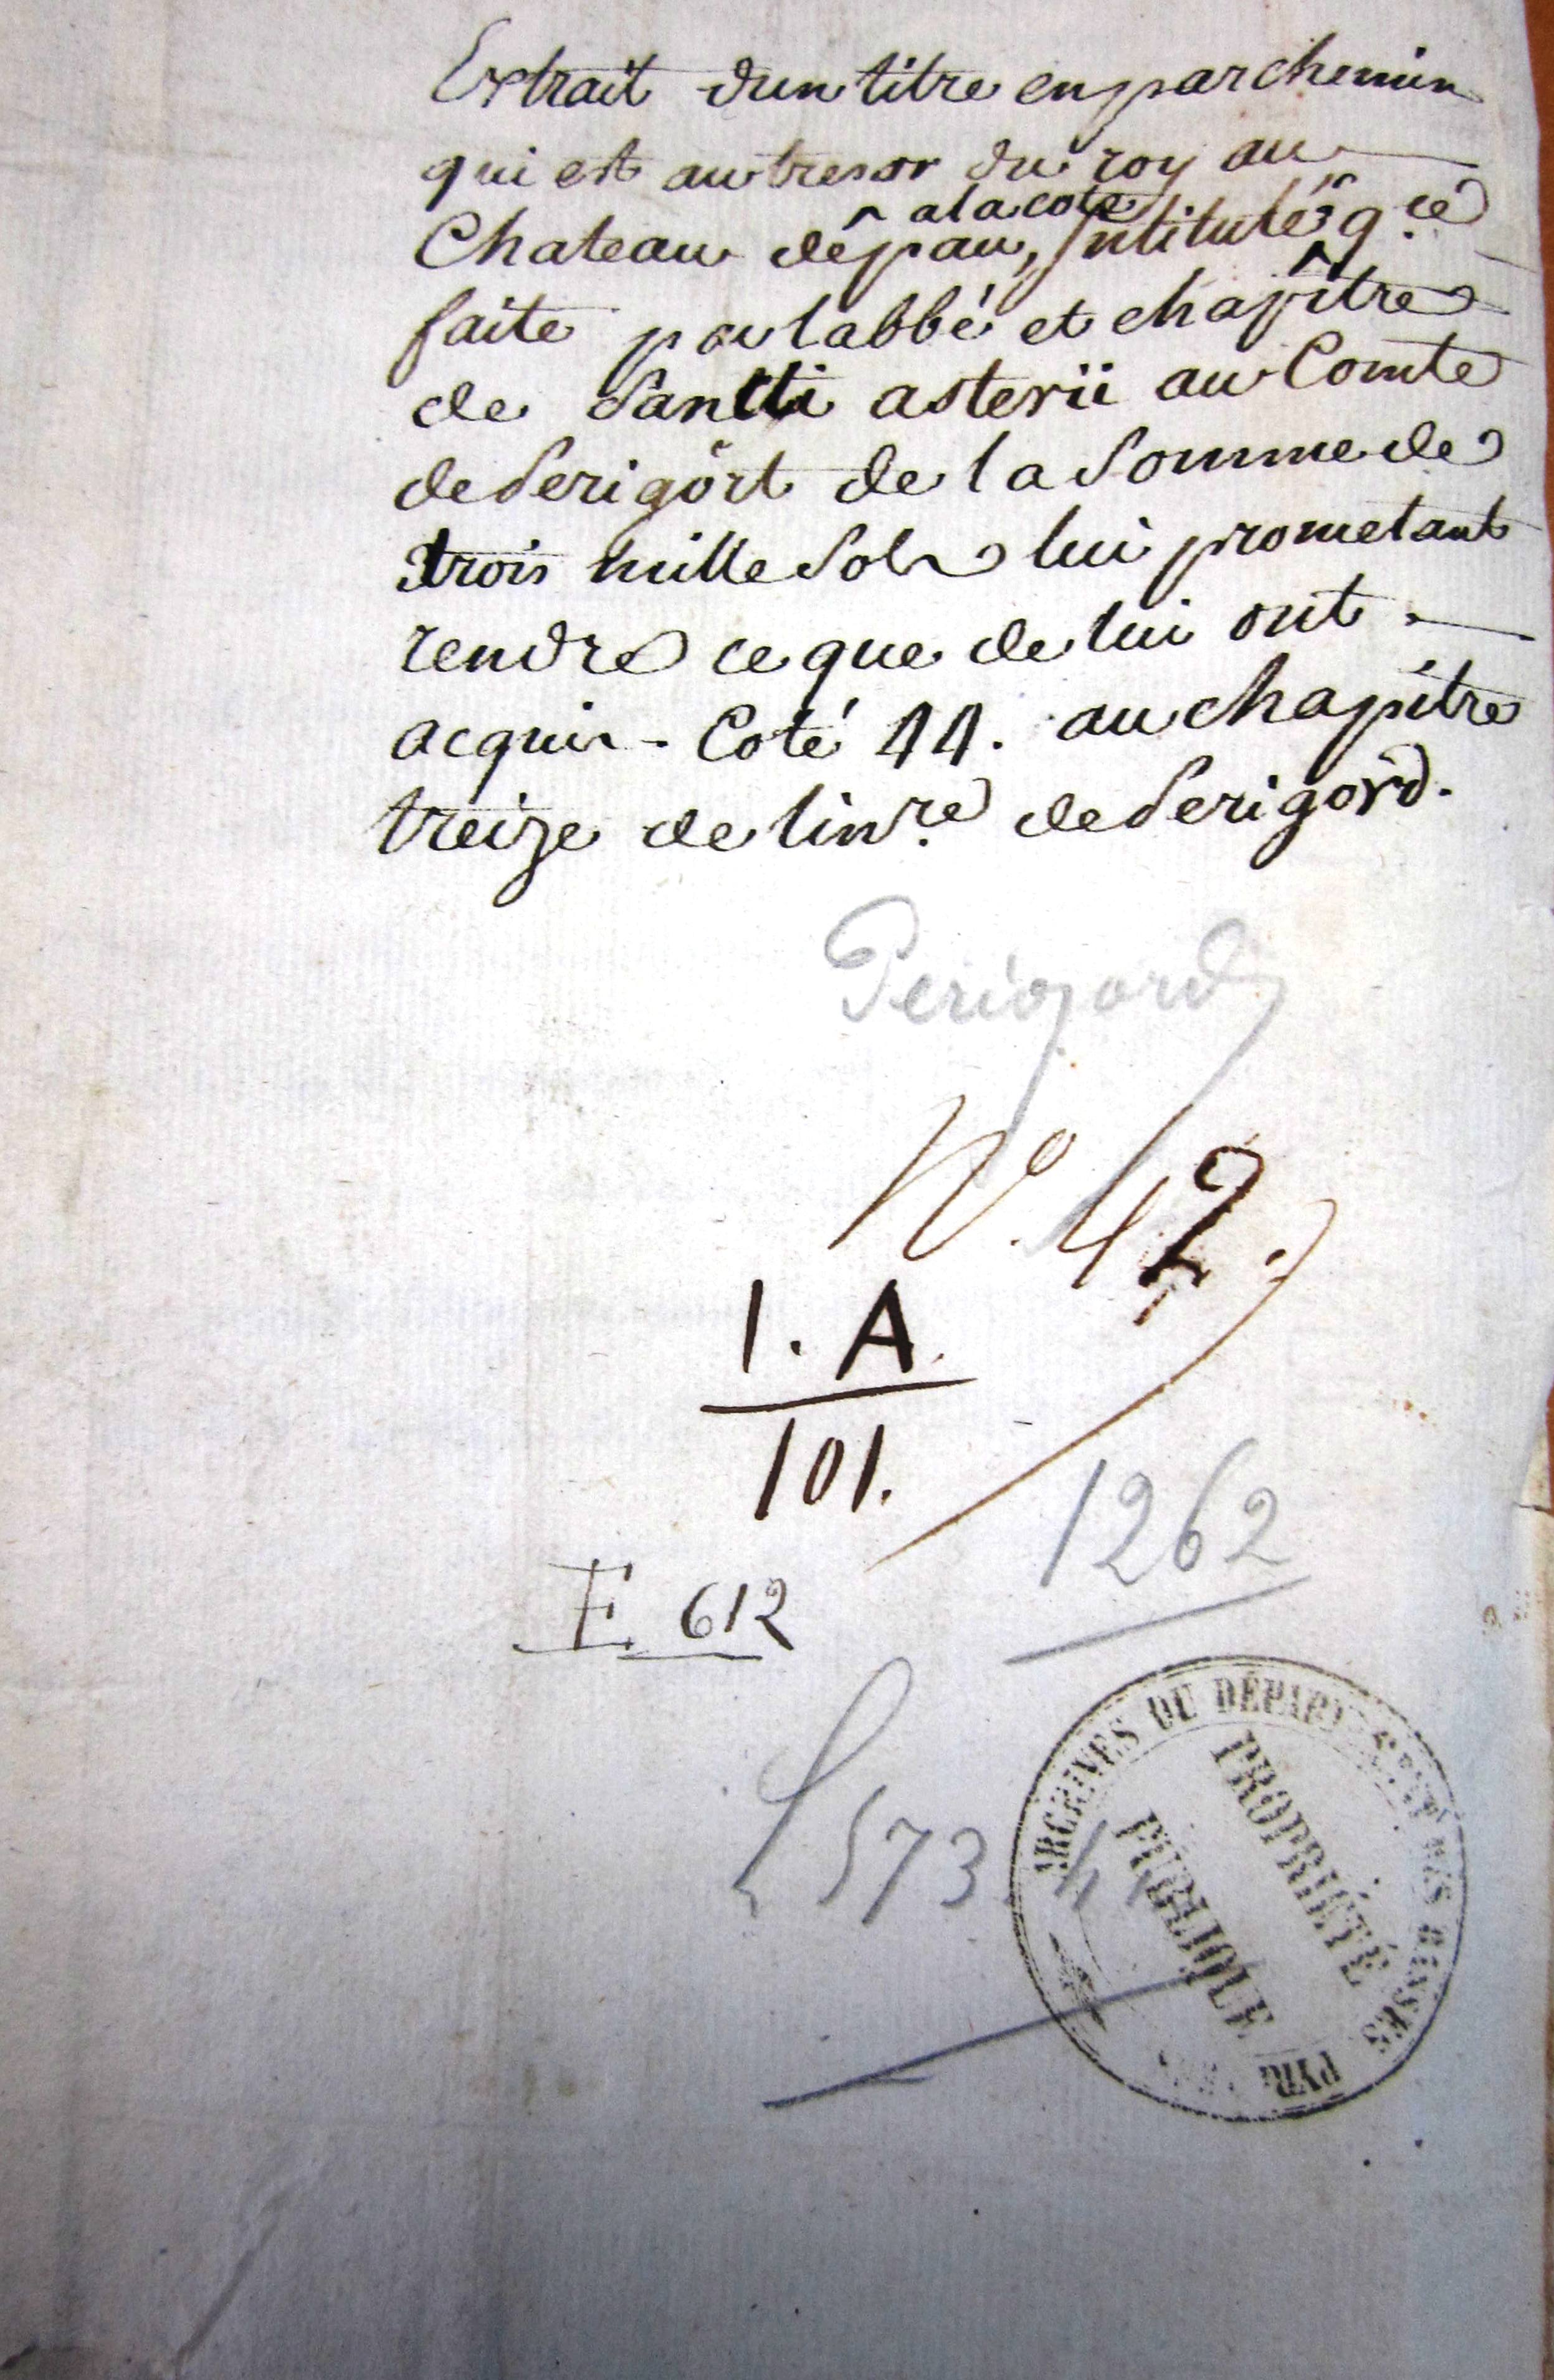 Extrait d'un titre en parchemin
qui est au tresor du roy au
Chateau dépau, ^ a la cote Intitulé q.ce
faite par labbé et chapitre
de Sancti asterii au Comte
de Perigort de la Somme de
trois mille Sols lui prometant
rendre ce que de lui ont
acquis - Coté 44. au chapitre
treize de linv.re de Perigord.
Perigord
N.º 42.
1. A.
101.
1262
E 612
L 573.
ARCHIVES DU DÉPARTEMENT DES BASSES PYR
PROPRIÉTÉ
PUBLIQUE